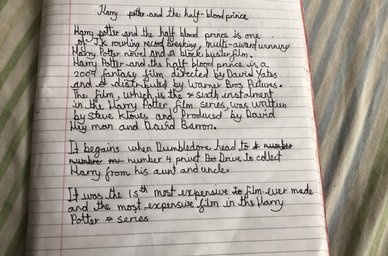 Harry potter and the half-blood prince
Harry potter and the half blood prince is one
of J.K rowling record breaking, multi-award winning
Harry Potter novel and a block buster film.
Harry Potter and the half blood prince is a
2009 fantasy film directed by David Yates
and distributed by Warner Bros. Pictures.
The film, which is the sixth instalment
in the Harry Potter film series, was written
by Steve Kloves and produced by David
Hey man and David Barron.
It begins when Dumbledore head to number
number number 4 privet Drive to collect
Harry from his aunt and uncle.
It was the 15th most expensive film ever made
and the most expensive film in the Harry
Potter series